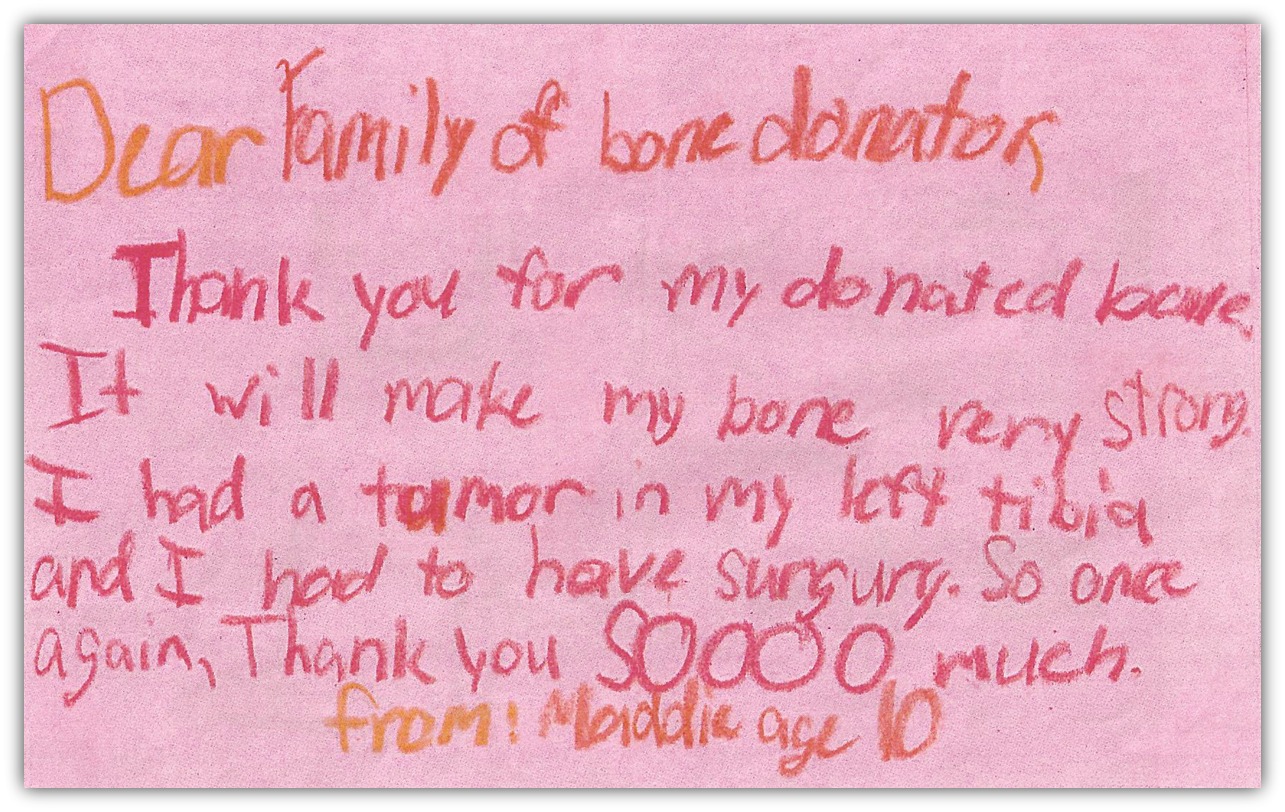 Dear Family of bone donator,
Thank you for my donated bone.
It will make my bone very strong.
I had a tumor in my left tibia
and I had to have surgury. So once
again, Thank you SOOOO much.
from: Maddie age 10